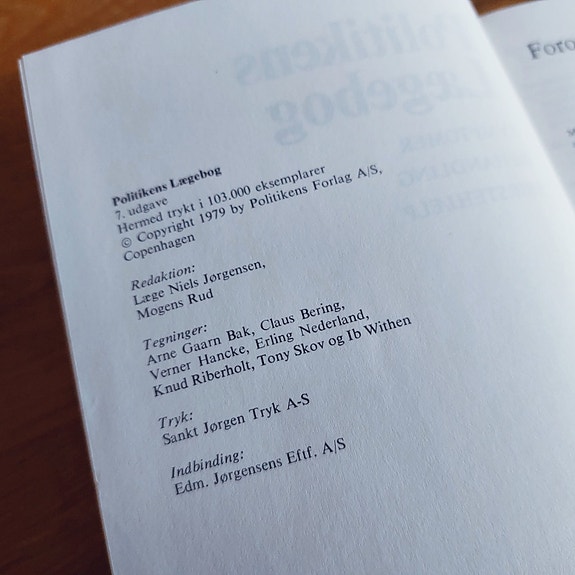 Politikens Lægebog
7. udgave
Hermed trykt i 103.000 eksemplarer
© Copyright 1979 by Politikens Forlag A/S,
Copenhagen
Redaktion:
Læge Niels Jørgensen,
Mogens Rud
Tegninger:
Arne Gaarn Bak, Claus Bering,
Verner Hancke, Erling Nederland,
Knud Riberholt, Tony Skov og Ib Withen
Tryk:
Sankt Jørgen Tryk A-S
Indbinding:
Edm. Jørgensens Eftf. A/S
Politikens
Lægebog